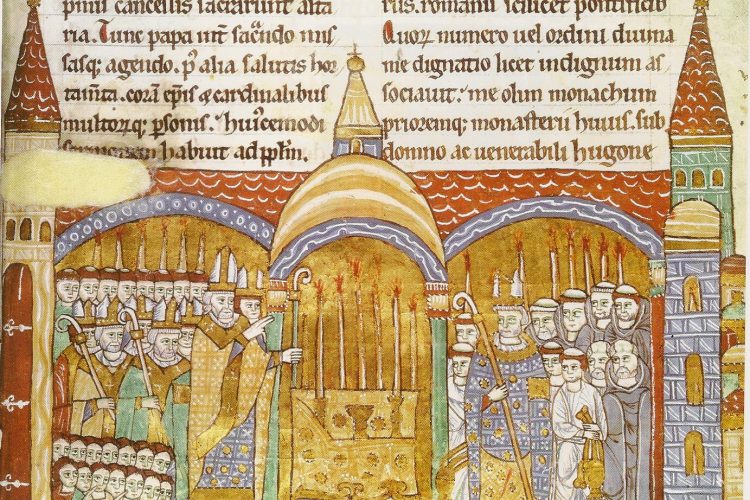 cancellis sacrarunt alta
ria. Tunc papa int sac̃ndo mis
sasq; agendo. p̃ alia salutis hor
tam̃ta. corã ep̃is & cardinalibus
multorꝗ; p̃sonis. huꝰcemodi
habuit ad pp̃lm.
rus. romani scilicet pontificib
Quorꝝ numero uel ordini diuina
me dignatio licet indignum as
sociauit. me olim monachum
prioremq; monasterii huius. sub
domno ac uenerabili hugone